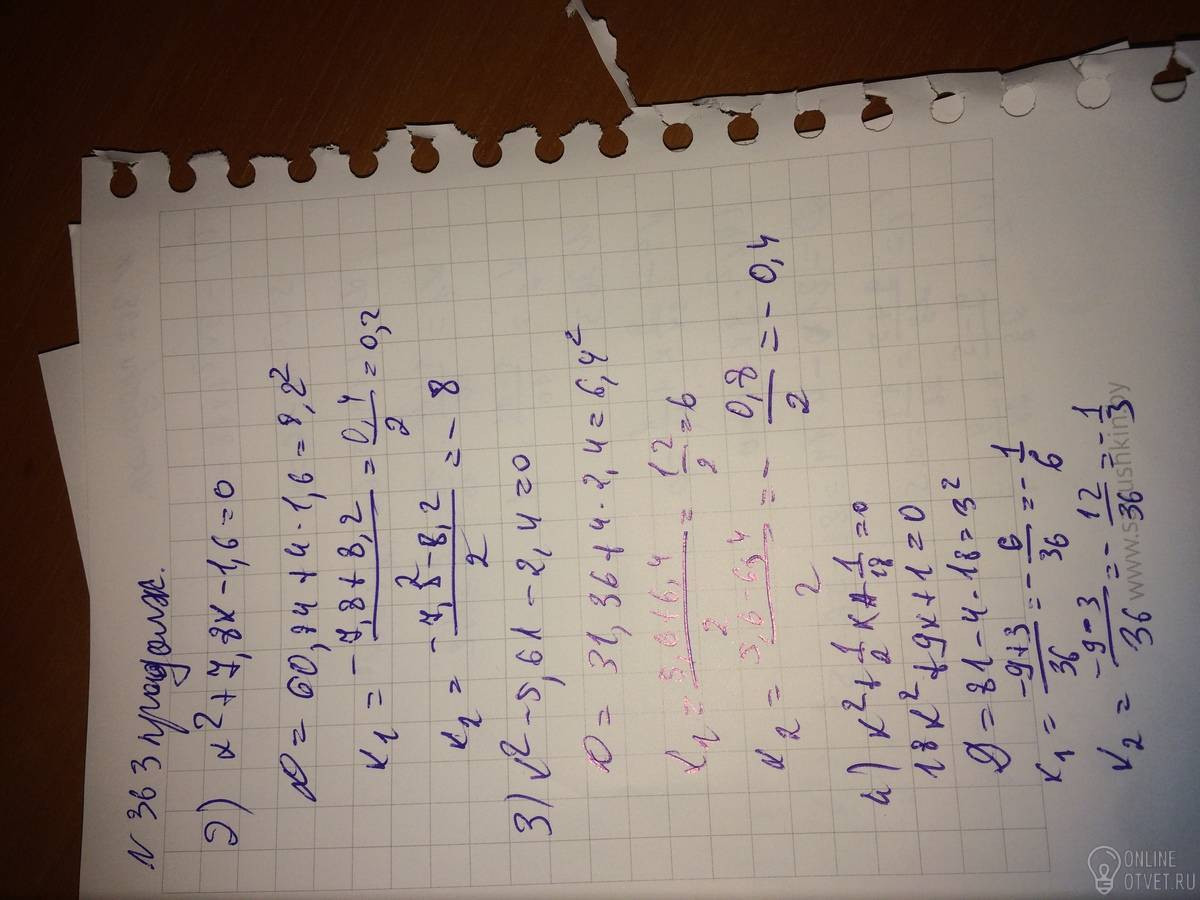 N 363 продолж.
2) x²+7,8x-1,6=0
D=60,84+4·1,6=8,2²
x₁=(-7,8+8,2)/2=0,4/2=0,2
x₂=(-7,8-8,2)/2=-8
3) x²-5,6x-2,4=0
D=31,36+4·2,4=6,4²
x₁=(5,6+6,4)/2=12/2=6
x₂=(5,6-6,4)/2=-0,8/2=-0,4
4) x²+1/2x+1/18=0
18x²+9x+1=0
D=81-4·18=3²
x₁=(-9+3)/36=-6/36=-1/6
x₂=(-9-3)/36=-12/36=-1/3
ONLINE
OTVET.RU